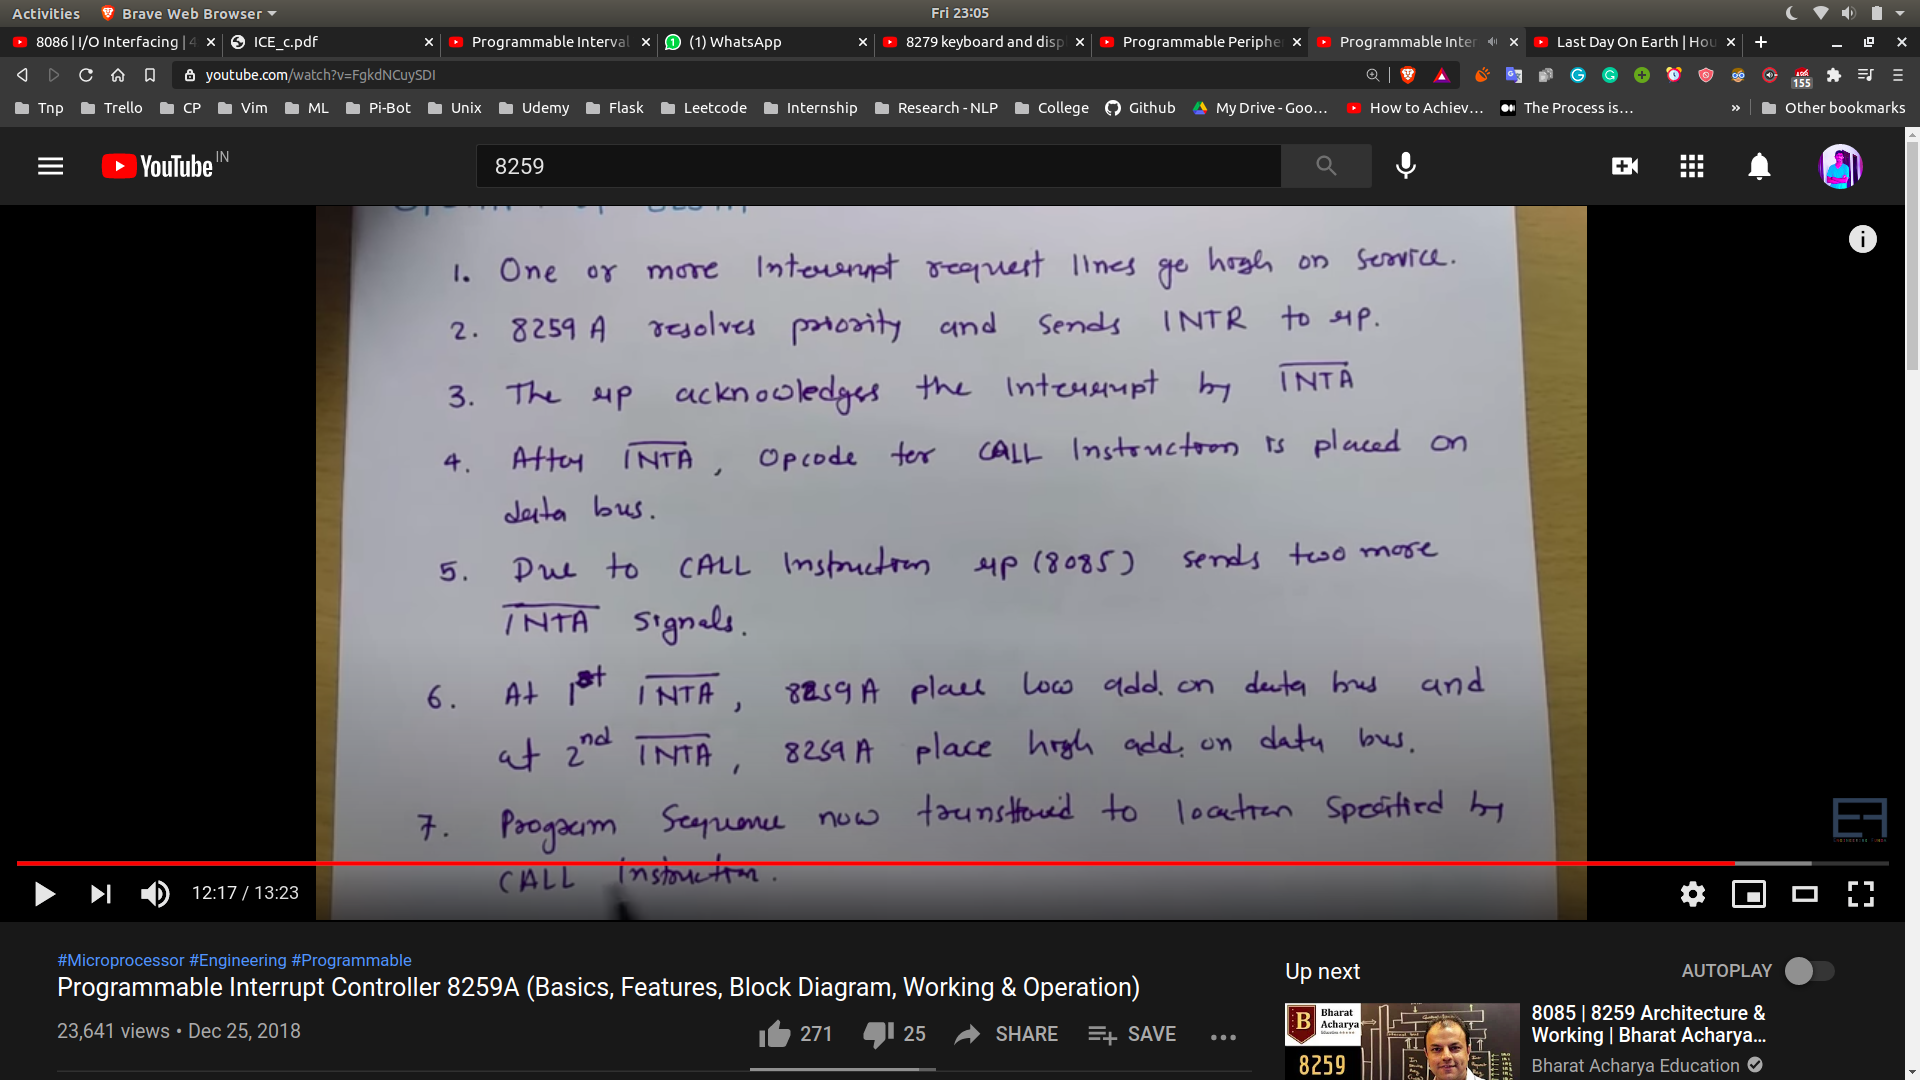 Activities Brave Web Browser Fri 23:05
8086 | I/O Interfacing | 4 ICE_c.pdf Programmable Interval (1) WhatsApp 8279 keyboard and disp Programmable Periphe Programmable Inter Last Day On Earth | Hou
youtube.com/watch?v=FgkdNCuySDI 155
Tnp Trello CP Vim ML Pi-Bot Unix Udemy Flask Leetcode Internship Research - NLP College Github My Drive - Goo... How to Achiev... The Process is... » Other bookmarks
YouTube IN 8259
1. One or more Interrupt request lines go high on service.
2. 8259 A resolves priority and sends INTR to μp.
3. The μp acknowledges the Interrupt by INTA
4. After INTA, Opcode for CALL Instruction is placed on
data bus.
5. Due to CALL Instruction μp (8085) sends two more
INTA signals.
6. At 1st INTA, 8259 A place low add. on data bus and
at 2nd INTA, 8259 A place high add. on data bus.
7. Program Sequence now transferred to location specified by
CALL Instruction.
12:17 / 13:23
#Microprocessor #Engineering #Programmable
Programmable Interrupt Controller 8259A (Basics, Features, Block Diagram, Working & Operation)
23,641 views • Dec 25, 2018
271 25 SHARE SAVE
Up next AUTOPLAY
Bharat
Acharya
8259
8085 | 8259 Architecture &
Working | Bharat Acharya...
Bharat Acharya Education